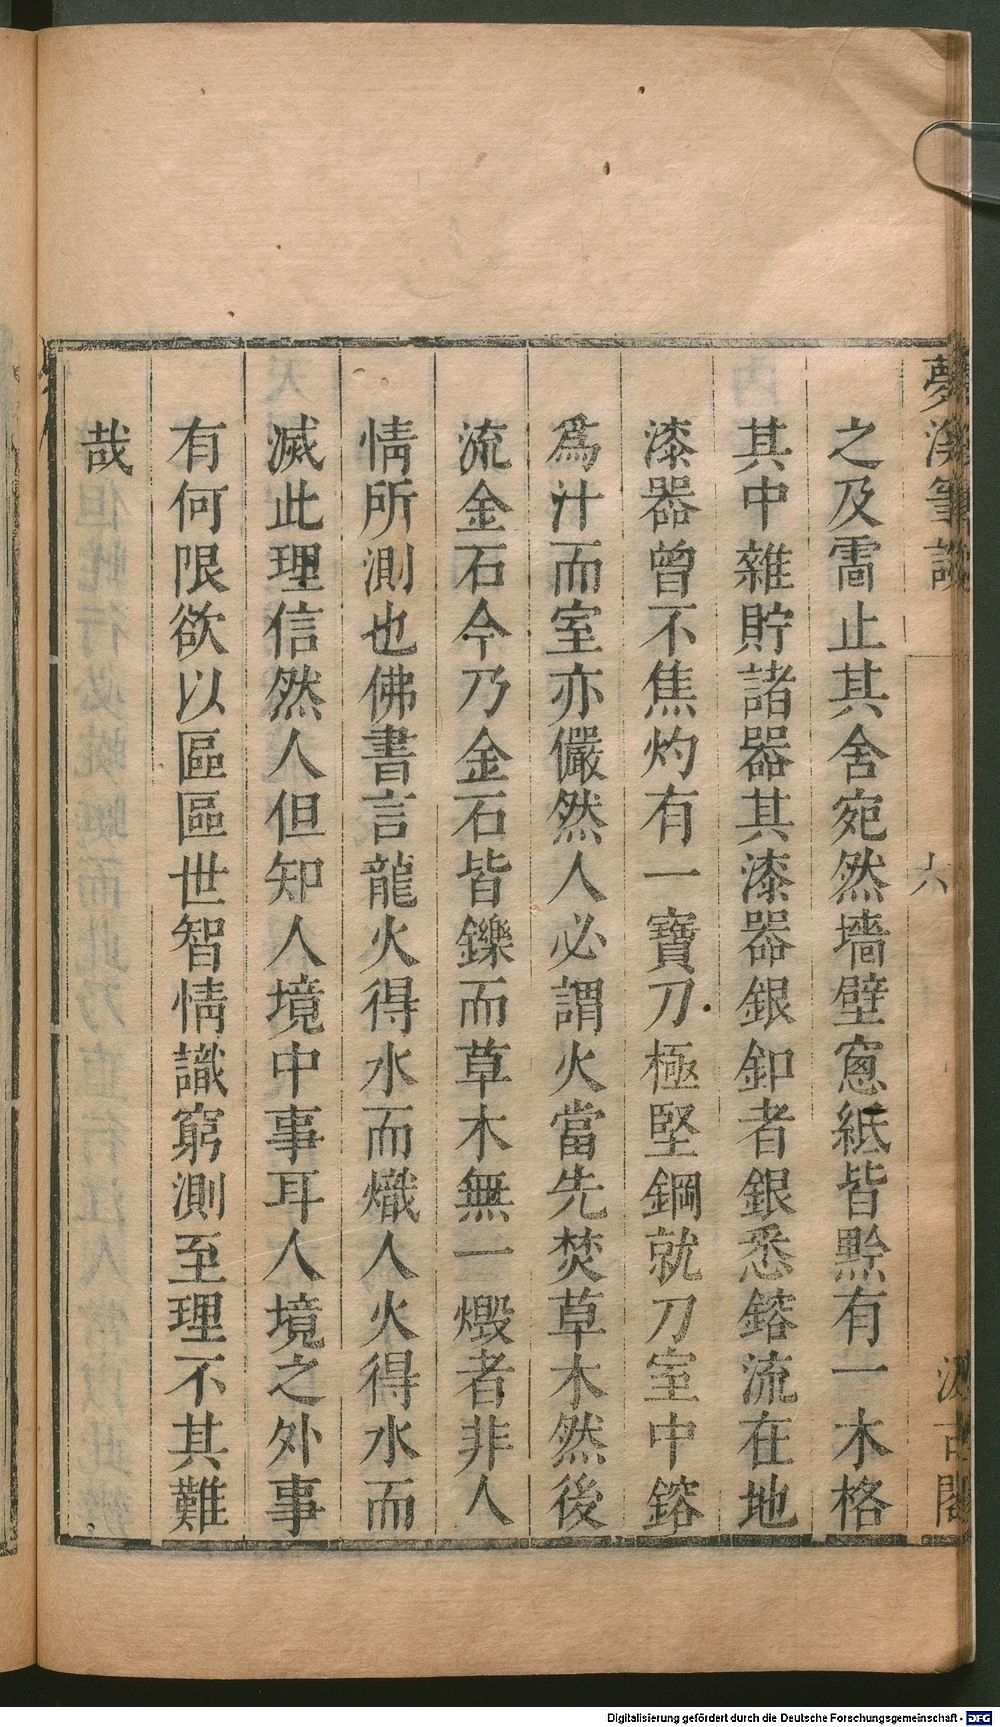 夢溪筆談
六
汲古閣
之及雷止其舍宛然墻壁窻紙皆黔有一木格
其中雜貯諸器其漆器銀釦者銀悉鎔流在地
漆器曾不焦灼有一寶刀極堅鋼就刀室中鎔
爲汁而室亦儼然人必謂火當先焚草木然後
流金石今乃金石皆鑠而草木無一燬者非人
情所測也佛書言龍火得水而熾人火得水而
滅此理信然人但知人境中事耳人境之外事
有何限欲以區區世智情識窮測至理不其難
哉
Digitalisierung gefördert durch die Deutsche Forschungsgemeinschaft - DFG